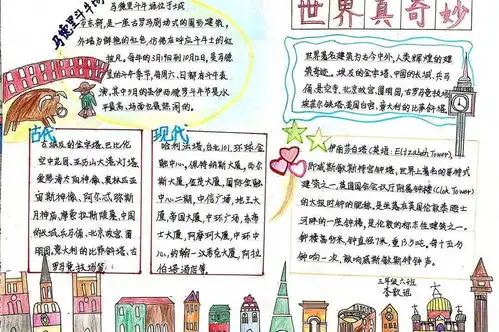 世界真奇妙
马德里斗牛场
马德里斗牛场位于土城
东部,是一座古罗马剧场式的圆形建筑,
外墙为鲜艳的红色,仿佛在呼应斗牛士的红
披风。每年的3月19日和10月12日,是马德
里的斗牛季节,每周六、日都有斗牛表
演,其中5月的圣伊西德罗斗牛节是水
平最高、场面也最热闹的。
世界著名建筑为古今中外,人类辉煌的建
筑奇迹。埃及的金字塔,中国的长城,兵马
俑,悬空寺,北京故宫,圆明园,古罗马竞技场,
埃菲尔铁塔,美国白宫,意大利的比萨斜塔。
古代
古埃及的金字塔,巴比伦
空中花园、亚历山大港灯塔
爱琴海太阳神像,奥林匹亚
宙斯神像、阿尔忒弥斯
月神庙,摩索拉斯陵墓,中国
的长城,兵马俑,北京故宫,圆
明园,意大利的比萨斜塔,古
罗马竞技场等;
现代
哈利法塔,台北101,环球金
融中心,佩特纳斯大厦,西尔
斯大厦,金茂大厦,国际金融
中心二期,中信广场,地王大
厦,帝国大厦,中环广场,
中银大厦,阿摩珂大厦,中环中
心,约翰-汉考克大厦,阿拉
伯塔酒店等。
伊丽莎白塔(英语:Elizabeth Tower),
即威斯敏斯特宫钟塔,世界上著名的哥特式
建筑之一,英国国会会议厅附属钟楼(Clock Tower)
的大报时钟的昵称,是坐落在英国伦敦泰晤士
河畔的一座钟楼,是伦敦的标志性建筑之一。
钟楼高95米,钟直径7米,重13.5吨。每十五分
钟响一次,敲响威斯敏斯特钟声。
三年级六班